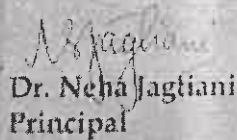 Dr. Neha Jagtiani
Principal